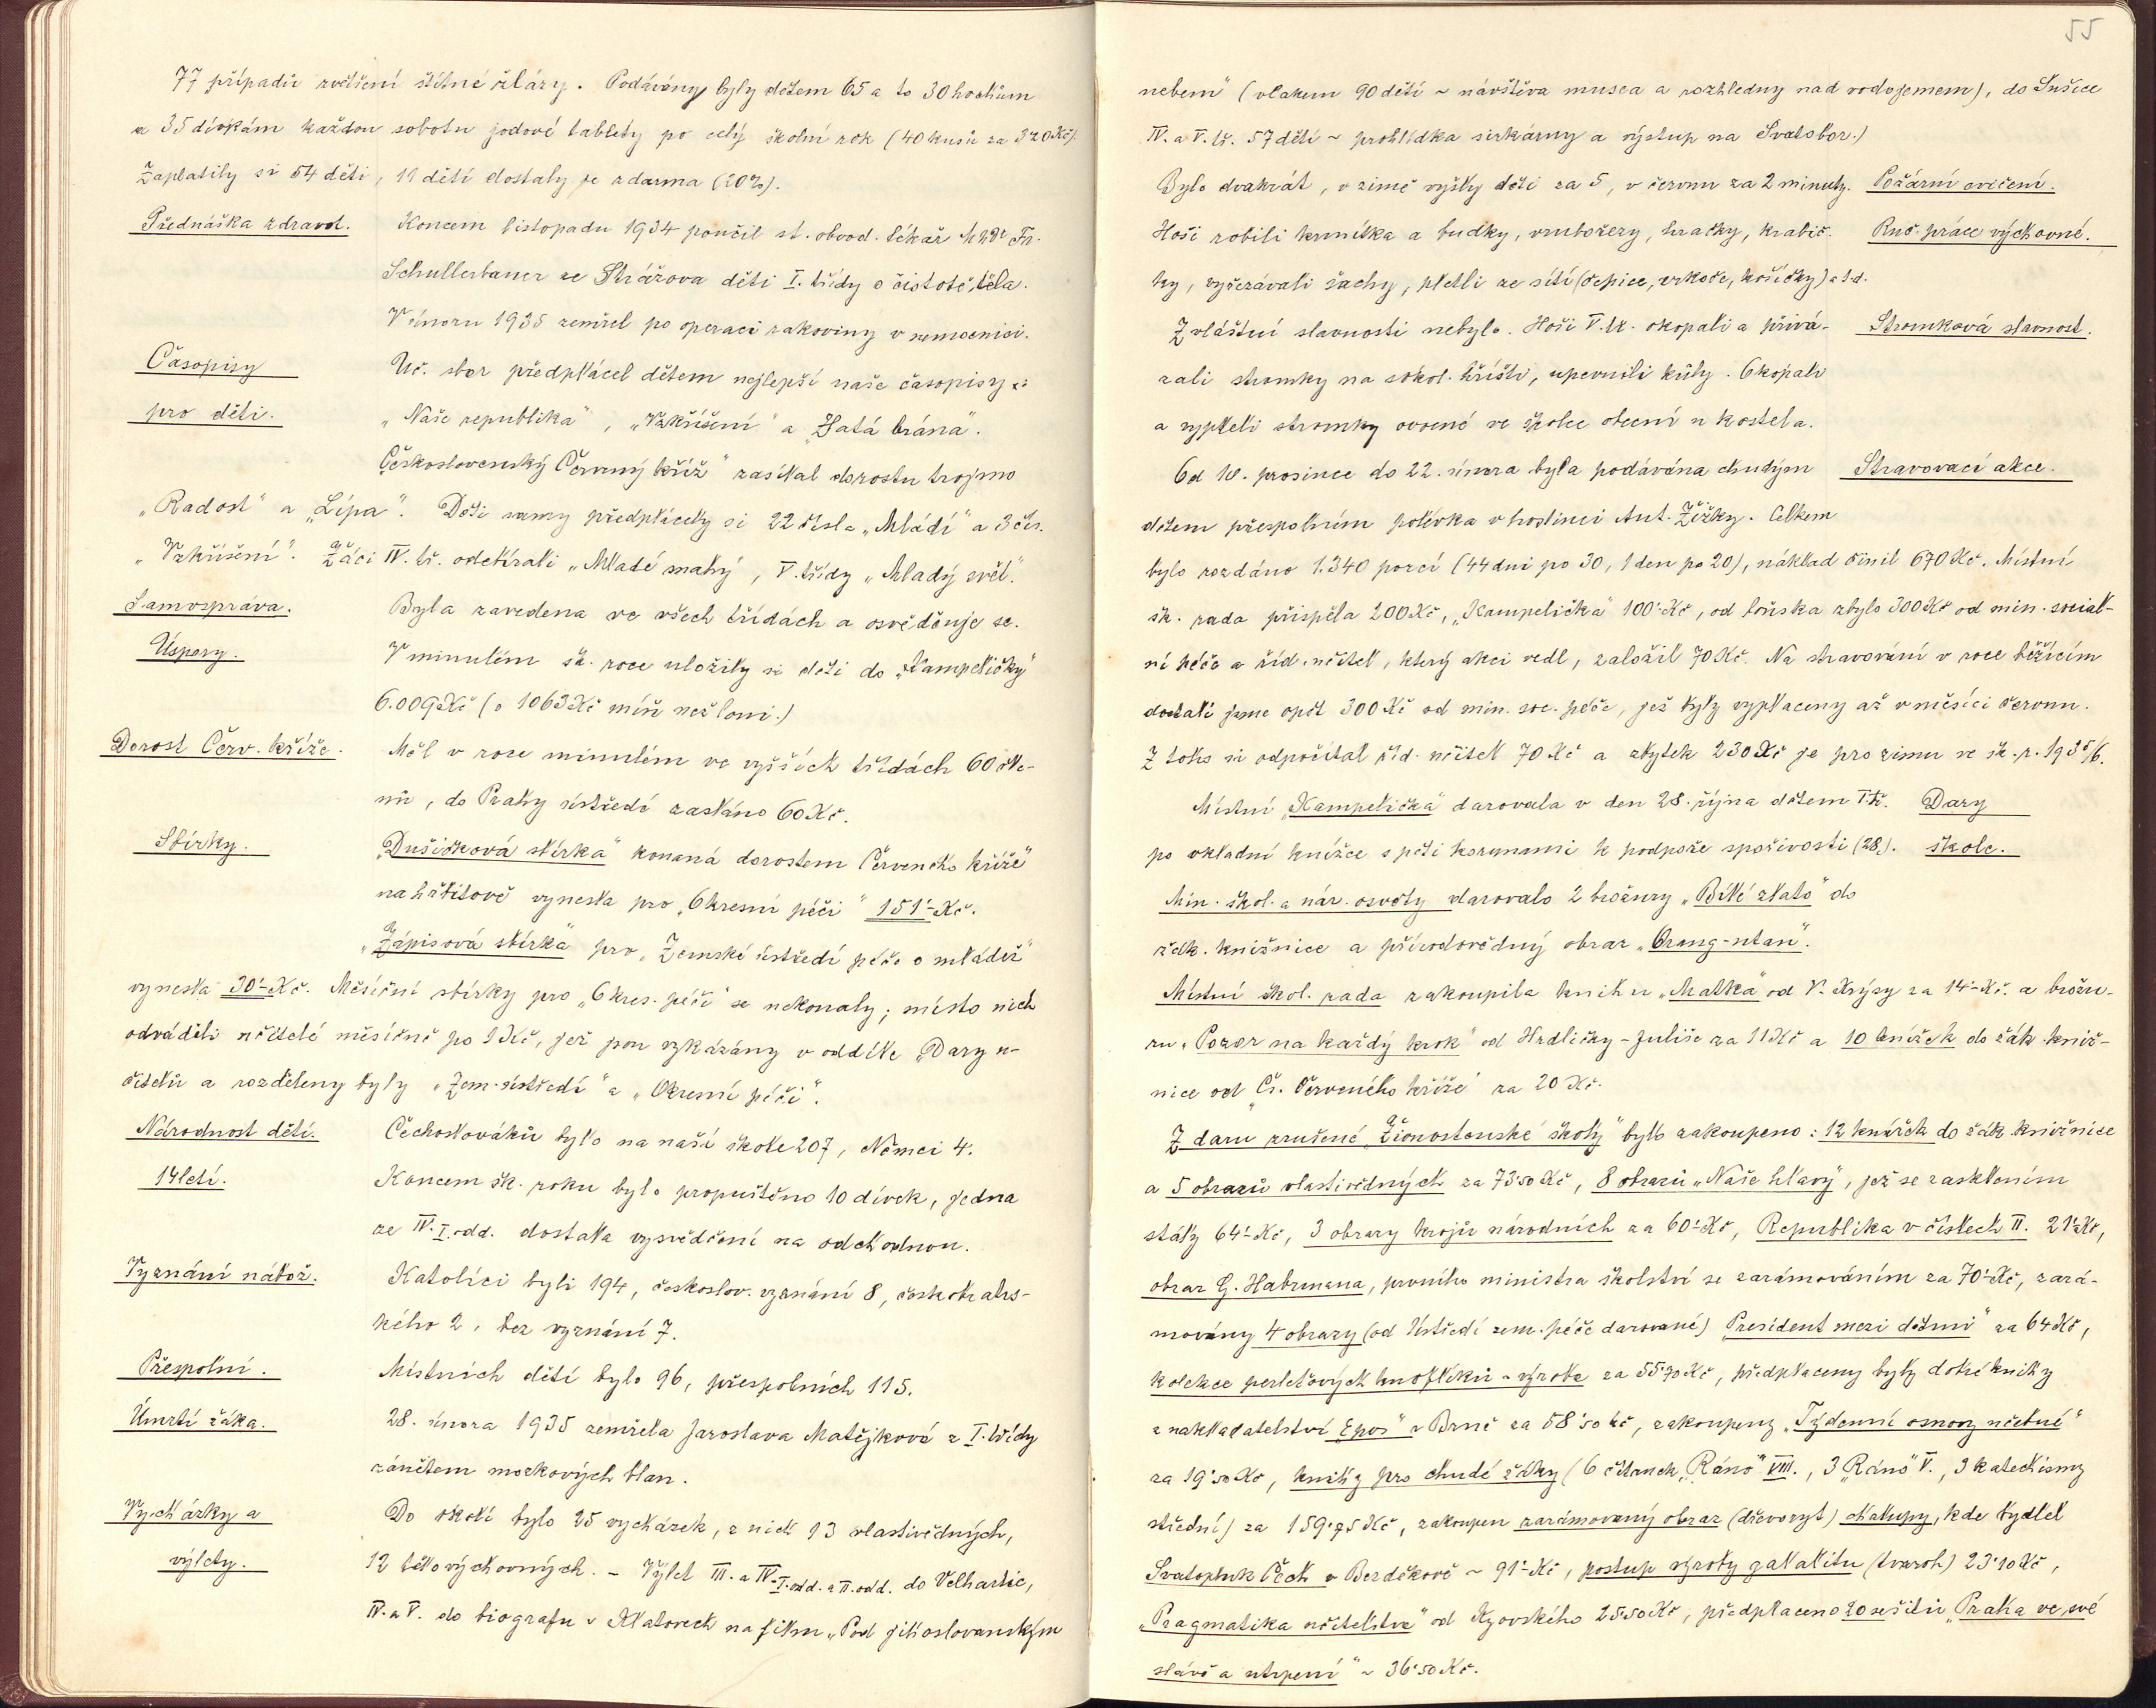 77 případů zvětšení štítné žlázy. Podávány byly dětem 65 a to 30 hochům
a 35 dívkám každou sobotu jodové tablety po celý školní rok (40 kusů za 3'20 Kč).
Zaplatily si 54 děti, 11 dětí dostaly je zdarma (20%).
Přednáška zdravot. Koncem listopadu 1934 poučil st. obvod. lékař MUDr Fr.
Schullerbauer ze Strážova děti I. třídy o čistotě těla.
V únoru 1935 zemřel po operaci rakoviny v nemocnici.
Časopisy Uč. sbor předplácel dětem nejlepší naše časopisy:
pro děti. „Naše republika", „Vzkříšení" a „Zlatá brána".
„Československý Červený kříž" zasílal dorostu trojmo
„Radost" a „Lípa". Děti samy předplácely si 22 čísla „Mládí" a 3 čís.
„Vzkříšení". Žáci IV. tř. odebírali „Mladé snahy", V. třídy „Mladý svět".
Samospráva. Byla zavedena ve všech třídách a osvědčuje se.
Úspory. V minulém šk. roce uložily si děti do „Kampeličky"
6.009 Kč (o 1063 Kč míň než loni.)
Dorost Červ. kříže. Měl v roce minulém ve vyšších třídách 60 čle-
nů, do Prahy ústředí zasláno 60 Kč.
Sbírky. „Dušičková sbírka" konaná dorostem „Červeného kříže"
na hřbitově vynesla pro „Okresní péči" 151'- Kč.
„Zápisová sbírka" pro „Zemské ústředí péče o mládež"
vynesla 30'- Kč. Měsíční sbírky pro „Okres. péči" se nekonaly; místo nich
odváděli učitelé měsíčně po 1 Kč, jež jsou vykázány v oddíle „Dary u-
čitelů a rozděleny byly „Zem. ústředí" a „Okresní péči".
Národnost dětí. Čechoslováků bylo na naší škole 207, Němci 4.
14letí. Koncem šk. roku bylo propuštěno 10 dívek, jedna
ze IV. I. odd. dostala vysvědčení na odchodnou.
Vyznání nábož. Katolíci byli 194, českoslov. vyznání 8, českobratrs-
kého 2, bez vyznání 7.
Přespolní. Místních dětí bylo 96, přespolních 115.
Úmrtí žáka. 28. února 1935 zemřela Jaroslava Matějková z I. třídy
zánětem mozkových blan.
Vycházky a Do okolí bylo 25 vycházek, z nich 13 vlastivědných,
výlety. 12 tělovýchovných. - Výlet III. a IV. I. odd. a II. odd. do Velhartic,
IV. a V. do biografu v Klatovech na film „Pod jihoslovanským
55
nebem" (vlakem 90 dětí ~ návštěva musea a rozhledny nad vodojemem), do Sušice
IV. a V. tř. 57 dětí ~ prohlídka sirkárny a výstup na Svatobor.)
Bylo dvakrát, v zimě vyšly děti za 5, v červnu za 2 minuty. Požární cvičení.
Hoši robili krmítka a budky, vrubořezy, hračky, krabič- Ruč. práce výchovné.
ky, vyřezávali šachy, pletli ze sítí (čepice, vrkoče, košíčky) a t. d.
Zvláštní slavnosti nebylo. Hoši V. tř. okopali a přivá- Stromková slavnost.
zali stromky na sokol. hřišti, upevnili kůly. Okopali
a vypleli stromky ovocné ve školce obecní u kostela.
Od 10. prosince do 22. února byla podávána chudým Stravovací akce.
dětem přespolním polévka v hostinci Ant. Žižky. Celkem
bylo rozdáno 1.340 porcí (44 dni po 30, 1 den po 20), náklad činil 670 Kč. Místní
šk. rada přispěla 200 Kč, „Kampelička" 100'- Kč, od loňska zbylo 300 Kč od min. sociál-
ní péče a říd. učitel, který akci vedl, založil 70 Kč. Na stravování v roce běžícím
dostali jsme opět 300 Kč od min. soc. péče, jež byly vyplaceny až v měsíci červnu.
Z toho si odpočítal říd. učitel 70 Kč a zbytek 230 Kč je pro zimu ve šk. r. 1935/6.
Místní „Kampelička" darovala v den 28. října dětem I. tř. Dary
po vkladní knížce s pěti korunami k podpoře spořivosti (28). škole.
Min. škol. a nár. osvěty darovalo 2 brožury „Bílé zlato" do
žák. knižnice a přírodovědný obraz „Orang-utan".
Místní škol. rada zakoupila knihu „Matka" od V. Krýsy za 14'- Kč. a brožu-
ru „Pozor na každý krok" od Hrdličky - Juliše za 11 Kč a 10 knížek do žák. kniž-
nice od „Čs. Červeného kříže" za 20 Kč.
Z daru zrušené „Živnostenské školy" bylo zakoupeno: 12 knížek do žák. knižnice
a 5 obrazů vlastivědných za 73'50 Kč, 8 obrazů „Naše hlavy", jež se zasklením
stály 64'- Kč, 3 obrazy krojů národních za 60'- Kč, Republika v číslech II. 21'- Kč,
obraz G. Habrmana, prvního ministra školství se zarámováním za 70'- Kč, zará-
movány 4 obrazy (od Ústředí zem. péče darované) „President mezi dětmi" za 64 Kč,
kolekce perleťových knoflíků - výroba za 55'70 Kč, předplaceny byly dobré knihy
z nakladatelství „Epos" v Brně za 58'50 Kč, zakoupeny „Týdenní osnovy učebné"
za 19'50 Kč, knihy pro chudé žáky (6 čítanek „Ráno" VIII., 3 „Ráno" V., 3 katechismy
střední) za 159'75 Kč, zakoupen zarámovaný obraz (dřevoryt) chalupy, kde bydlel
Svatopluk Čech v Bezděkově ~ 91'- Kč, postup výroby galalitu (tvaroh) 23'10 Kč,
„Pragmatika učitelstva" od Kyovského 25'50 Kč, předplaceno 20 sešitů „Praha ve své
slávě a utrpení" ~ 36'50 Kč.